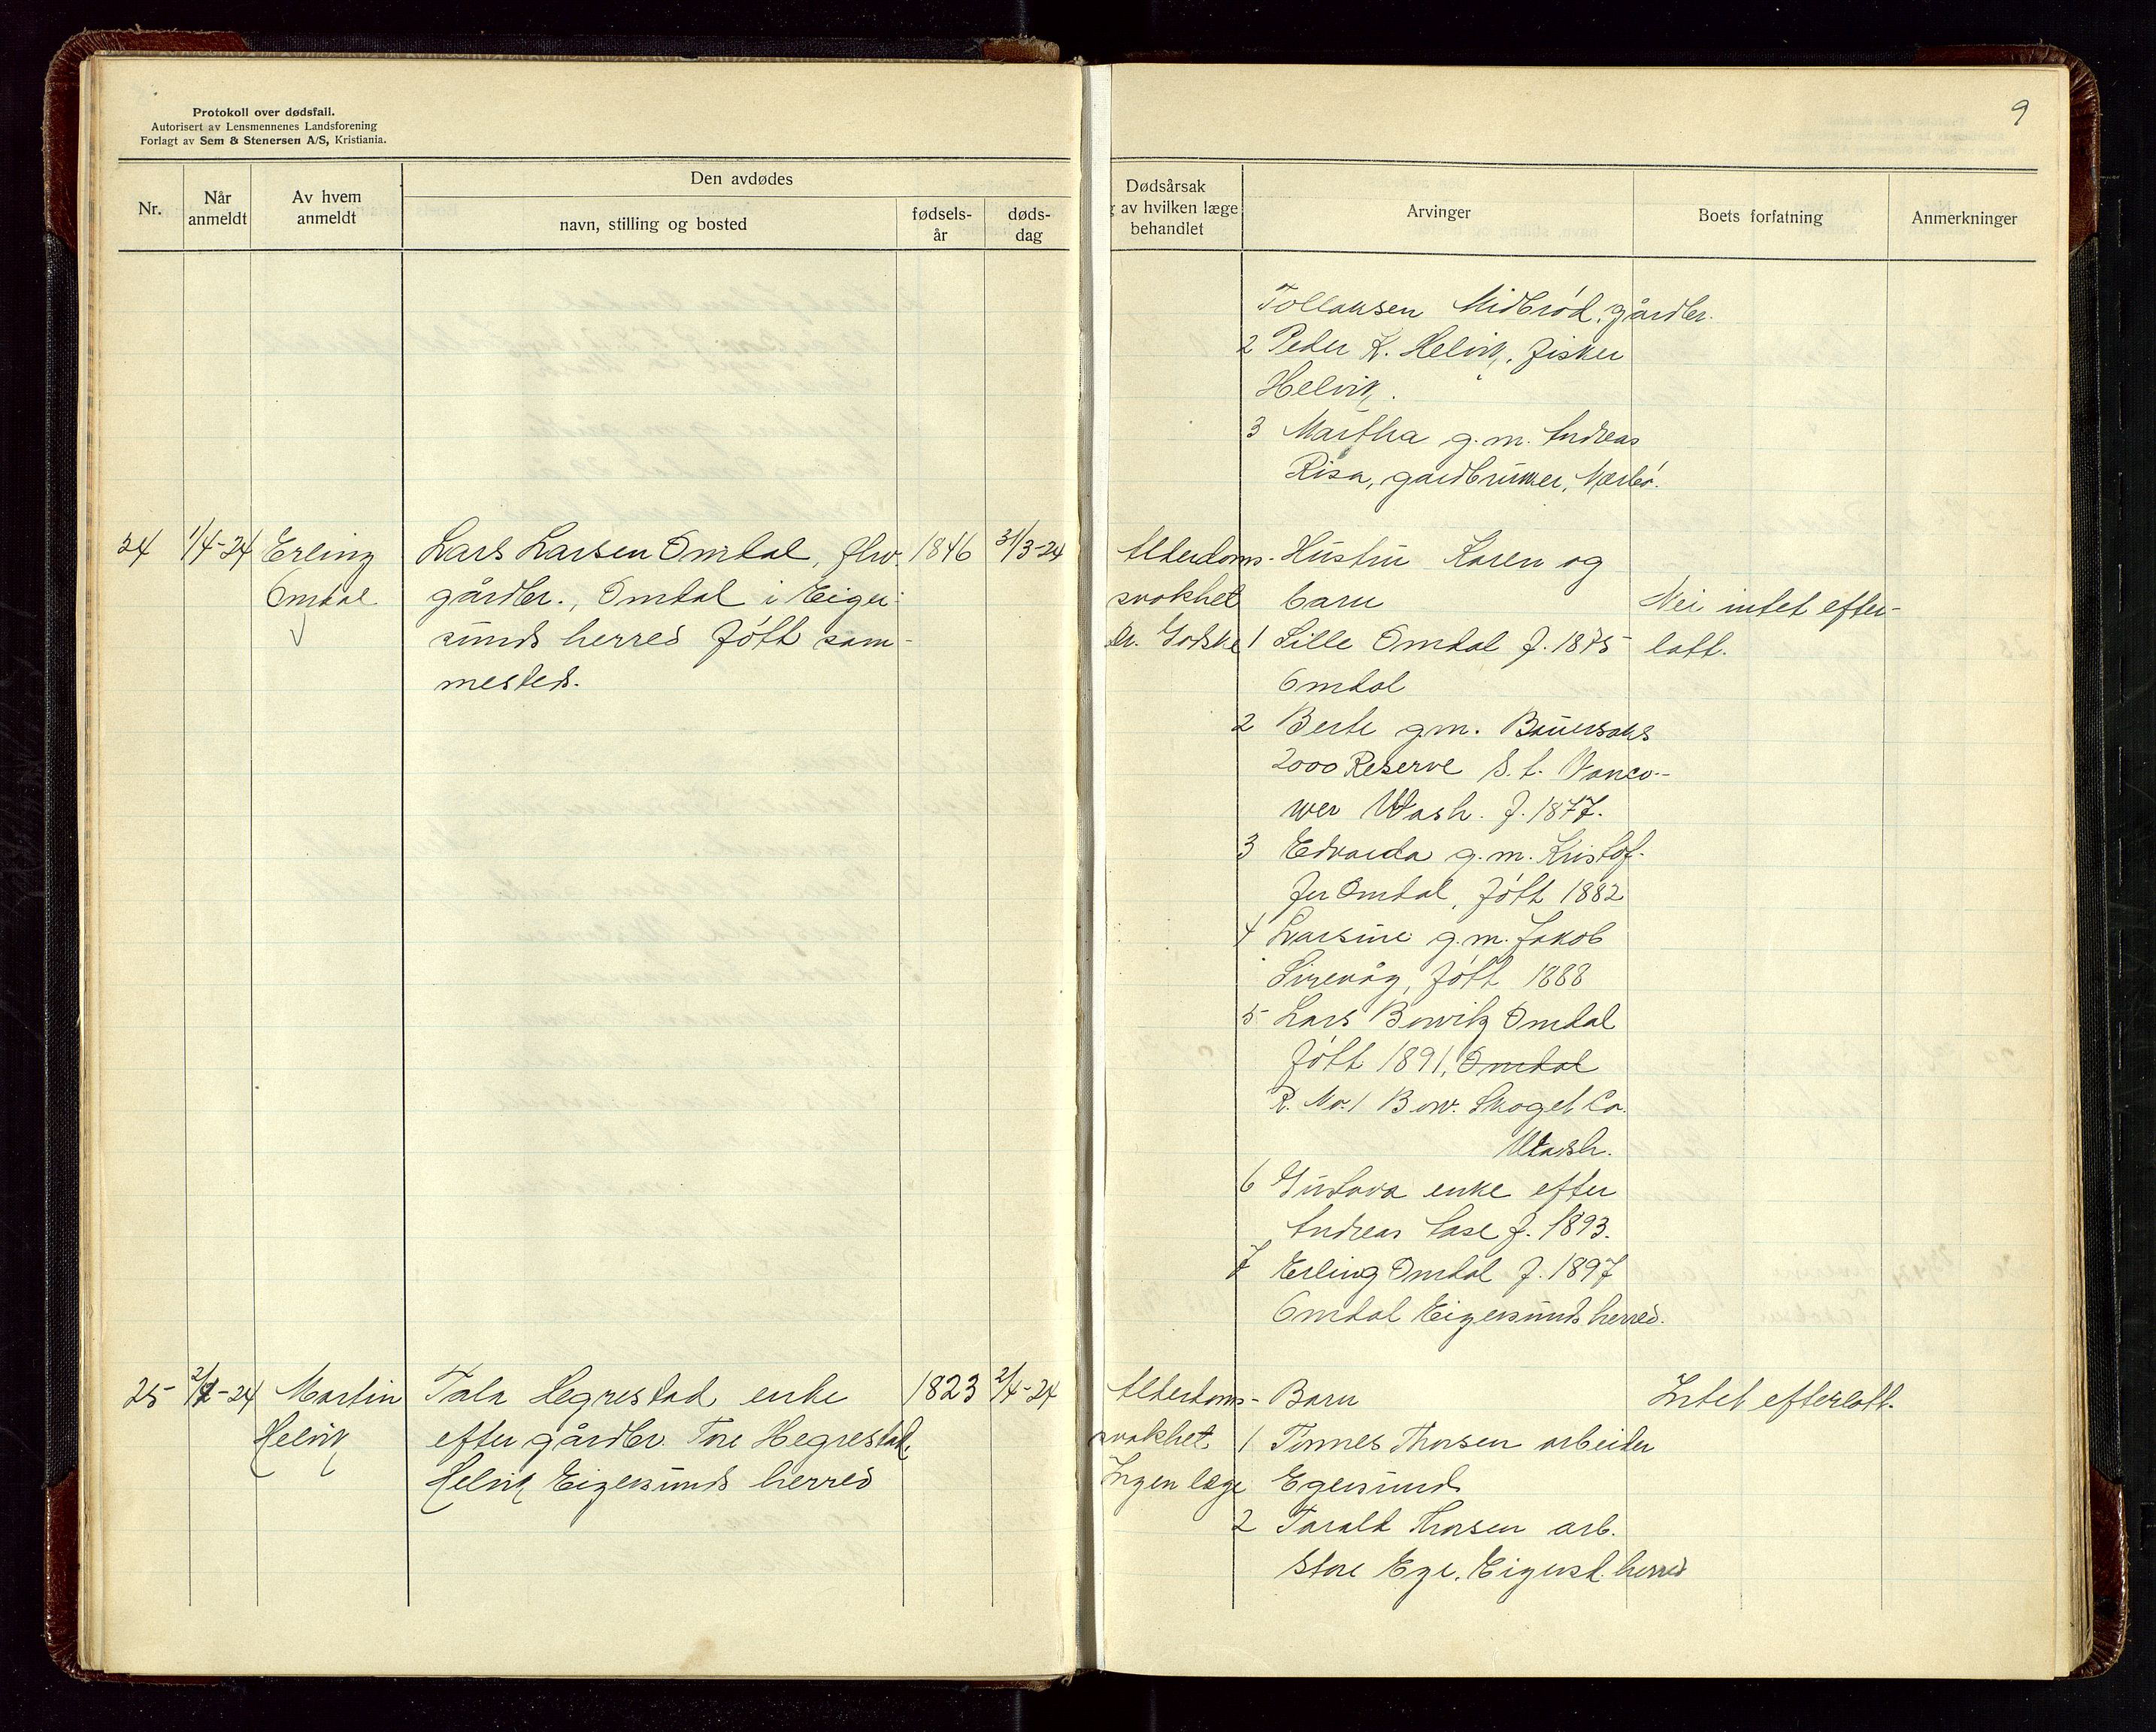 Protokoll over dødsfall.
Autorisert av Lensmennenes Landsforening
Forlagt av Sem & Stenersen A/S, Kristiania.
9
Nr.
Når anmeldt
Av hvem anmeldt
Den avdødes
navn, stilling og bosted
fødsels-år
døds-dag
Dødsårsak
av hvilken læge
behandlet
Arvinger
Boets forfatning
Anmerkninger
Tollaksen Midbrød, gårdbr.
2 Peder K. Helvik, fisker
Helvik.
3 Martha g.m. Andreas
Risa, gardbruker, Nærbø.
24 1/4-24 Erling Omdal
Lars Larsen Omdal, fhv. 1846 31/3-24
gårdbr., Omdal i Eiger-
sunds herred født sam-
mesteds.
Alderdoms-
svakhet
Dr. Godske
Hustru Karen og
barn
1 Sille Omdal f. 1875
Omdal
2 Berte g.m.
2000 Reserve S.t. Vanco-
wer Wash. f. 1877.
3 Edvarda g.m. Kristof-
fer Omdal, født 1882
4 Larsine g.m. Jakob
Sirevåg, født 1888
5 Lars Bowitz Omdal
født 1891, Omdal
R. No. 1 Bow. Skaget Co.
Wash.
6 Gustava enke efter
Andreas Aase f. 1893.
7 Erling Omdal f. 1897
Omdal Eigersunds herred.
Nei intet efter-
latt.
25 2/4-24 Martin Helvik
Tala Hegrestad enke 1823 2/4-24
efter gårdbr. Tore Hegrestad,
Helvik Eigersunds herred
Alderdoms-
svakhet
Ingen læge
Barn
1 Tønnes Thorsen arbeider
Egersund
2 Tarald Thorsen arb.
Store Ege, Eigersd. herred
Intet efterlatt.